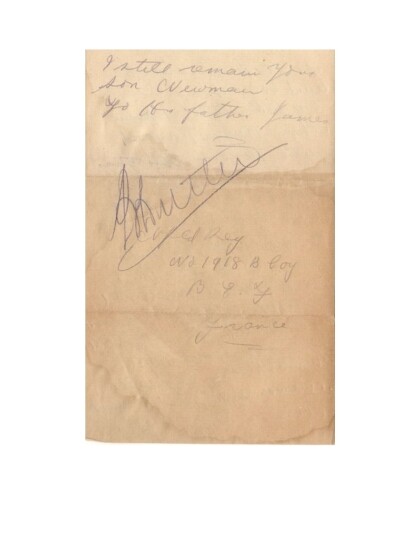 I still remain Your
son Newman
To His father James
No 1918 B Coy
B. E. F
France